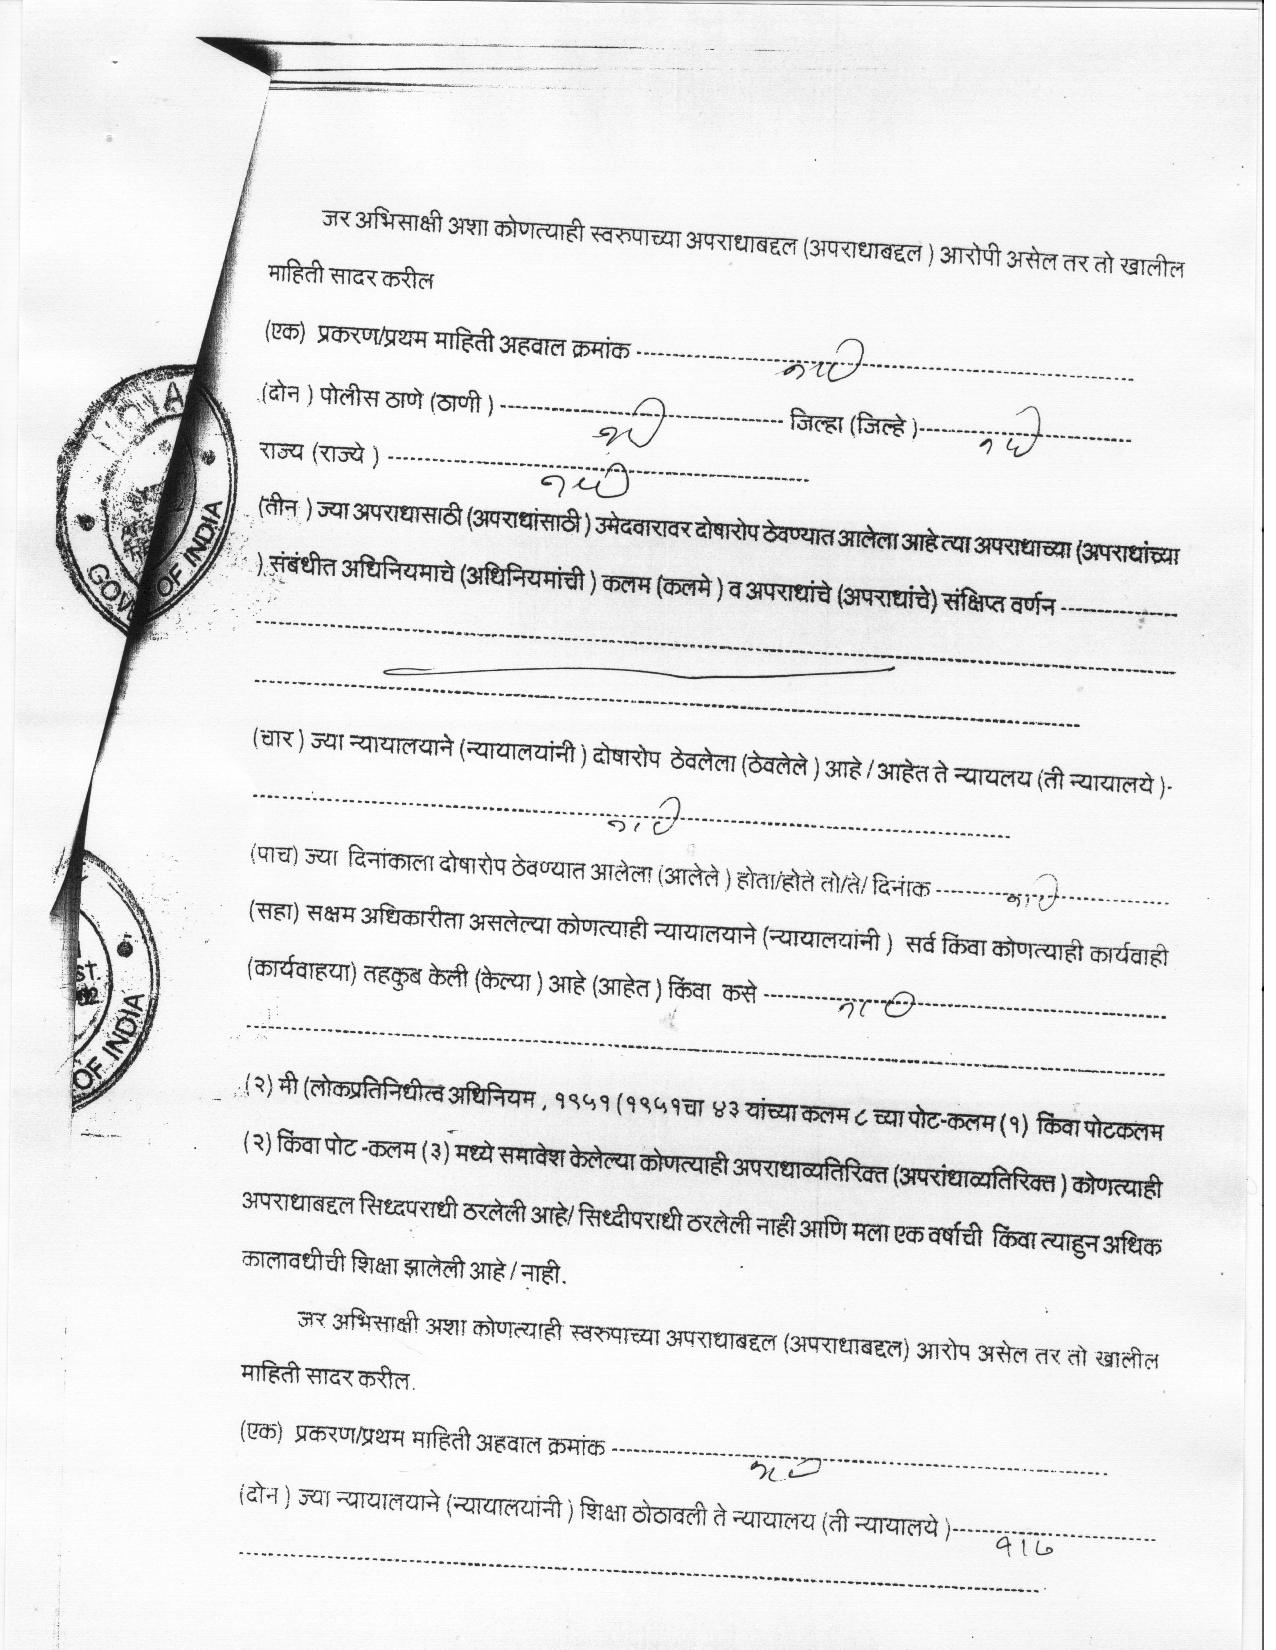 जर अभिसाक्षी अशा कोणत्याही स्वरुपाच्या अपराधाबद्दल (अपराधाबद्दल ) आरोपी असेल तर तो खालील
माहिती सादर करील
(एक) प्रकरण/प्रथम माहिती अहवाल क्रमांक -------------------- नाही
(दोन ) पोलीस ठाणे (ठाणी ) -------------------- नाही जिल्हा (जिल्हे )-------------------- नाही
राज्य (राज्ये ) -------------------- नाही
(तीन ) ज्या अपराधासाठी (अपराधांसाठी ) उमेदवारावर दोषारोप ठेवण्यात आलेला आहे त्या अपराधाच्या (अपराधांच्या
) संबंधीत अधिनियमाचे (अधिनियमांची ) कलम (कलमे ) व अपराधांचे (अपराधांचे) संक्षिप्त वर्णन -----------------
(चार ) ज्या न्यायालयाने (न्यायालयांनी ) दोषारोप ठेवलेला (ठेवलेले ) आहे / आहेत ते न्यायलय (ती न्यायालये )-
नाही
(पाच) ज्या दिनांकाला दोषारोप ठेवण्यात आलेला (आलेले ) होता/होते तो/ते/ दिनांक -------------------- नाही
(सहा) सक्षम अधिकारीता असलेल्या कोणत्याही न्यायालयाने (न्यायालयांनी ) सर्व किंवा कोणत्याही कार्यवाही
(कार्यवाहया) तहकुब केली (केल्या ) आहे (आहेत ) किंवा कसे -------------------- नाही
(२) मी (लोकप्रतिनिधीत्व अधिनियम , १९५१ (१९५१चा ४३ यांच्या कलम ८ च्या पोट-कलम (१) किंवा पोटकलम
(२) किंवा पोट -कलम (३) मध्ये समावेश केलेल्या कोणत्याही अपराधाव्यतिरिक्त (अपरांधाव्यतिरिक्त ) कोणत्याही
अपराधाबद्दल सिध्दपराधी ठरलेली आहे/ सिध्दीपराधी ठरलेली नाही आणि मला एक वर्षाची किंवा त्याहुन अधिक
कालावधीची शिक्षा झालेली आहे / नाही.
जर अभिसाक्षी अशा कोणत्याही स्वरुपाच्या अपराधाबद्दल (अपराधाबद्दल) आरोप असेल तर तो खालील
माहिती सादर करील.
(एक) प्रकरण/प्रथम माहिती अहवाल क्रमांक -------------------- नाही
(दोन ) ज्या न्यायालयाने (न्यायालयांनी ) शिक्षा ठोठावली ते न्यायालय (ती न्यायालये )--------------------
INDIA
GOV OF INDIA
ST.
OF INDIA